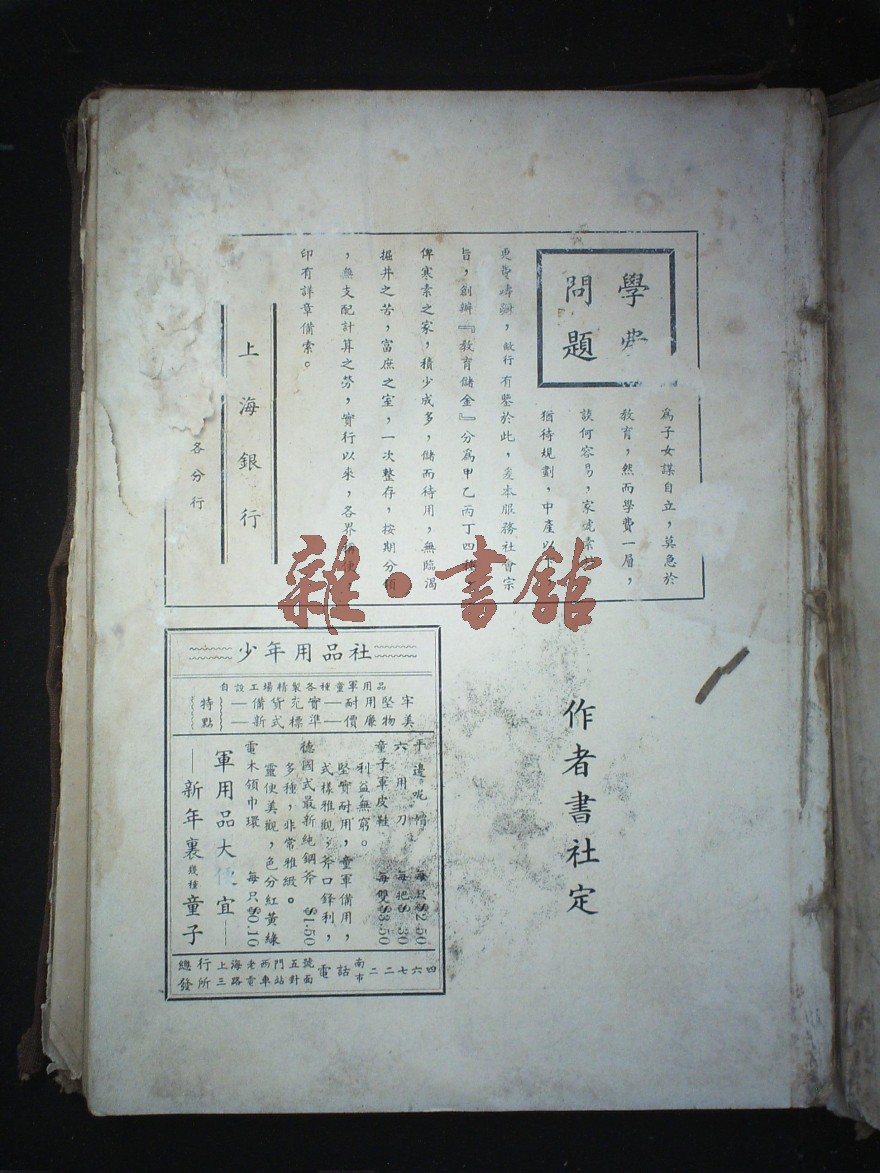 學費
問題
爲子女謀自立，莫急於
教育，然而學費一層，
談何容易，家號素
猶待規劃，中產以
更費躊躇，敝行有鑒於此，爰本服務社會宗
旨，創辦『教育儲金』分爲甲乙丙丁四種
俾寒素之家，積少成多，儲而待用，無臨渴
掘井之苦，富庶之室，一次整存，按期分領
，無支配計算之勞，實行以來，各界稱便
印有詳章備索。
上海銀行
各分行
雜·書館
作者書社定
少年用品社
自設工場精製各種童軍用品
特點
備貨充實——耐用堅牢
備新式標準——價廉物美
平邊呢帽 每只$2.50
六用刀 每把$ .30
童子軍皮鞋 每雙$3.50
利益無窮。
堅實耐用，童軍備用，
式樣雅觀，斧口鋒利，
德國式最新純鋼斧 $1.50
多種，非常雅緻。
靈便美觀，色分紅黃綠
電木領巾環 每只$0.10
軍用品大便宜——
——新年裏幾種童子
總發行所
上海老西門
三路電車站
五號
對面
電話
南市
二二七六四